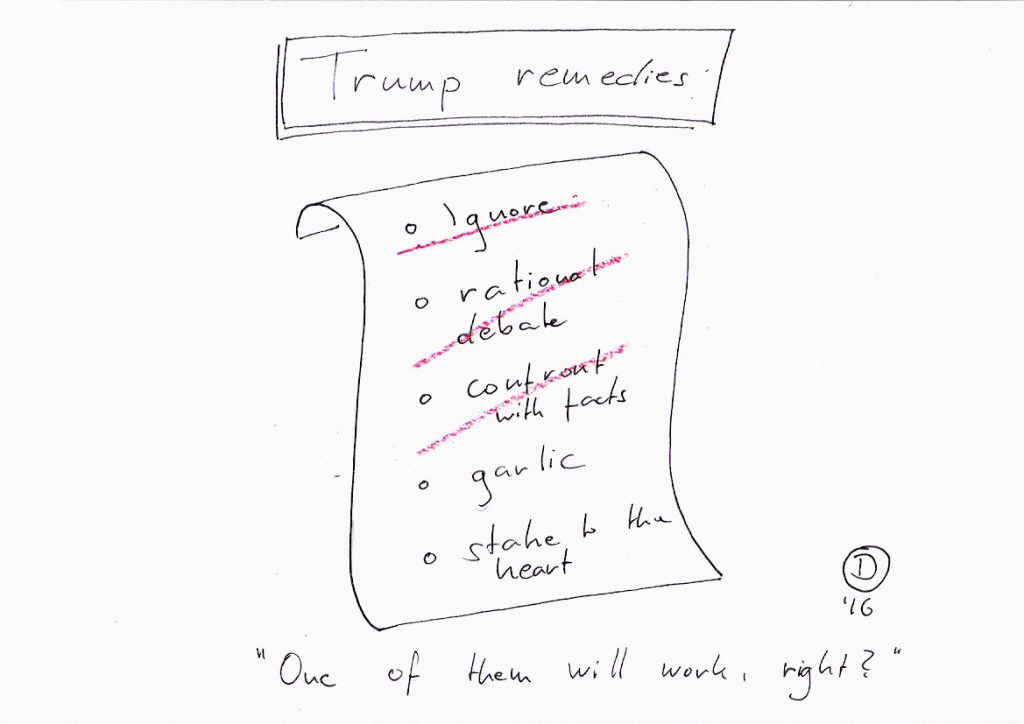 Trump remedies:
o Ignore
o rational
debate
o confront
with facts
o garlic
o stake to the
heart
D
'16
"One of them will work, right?"